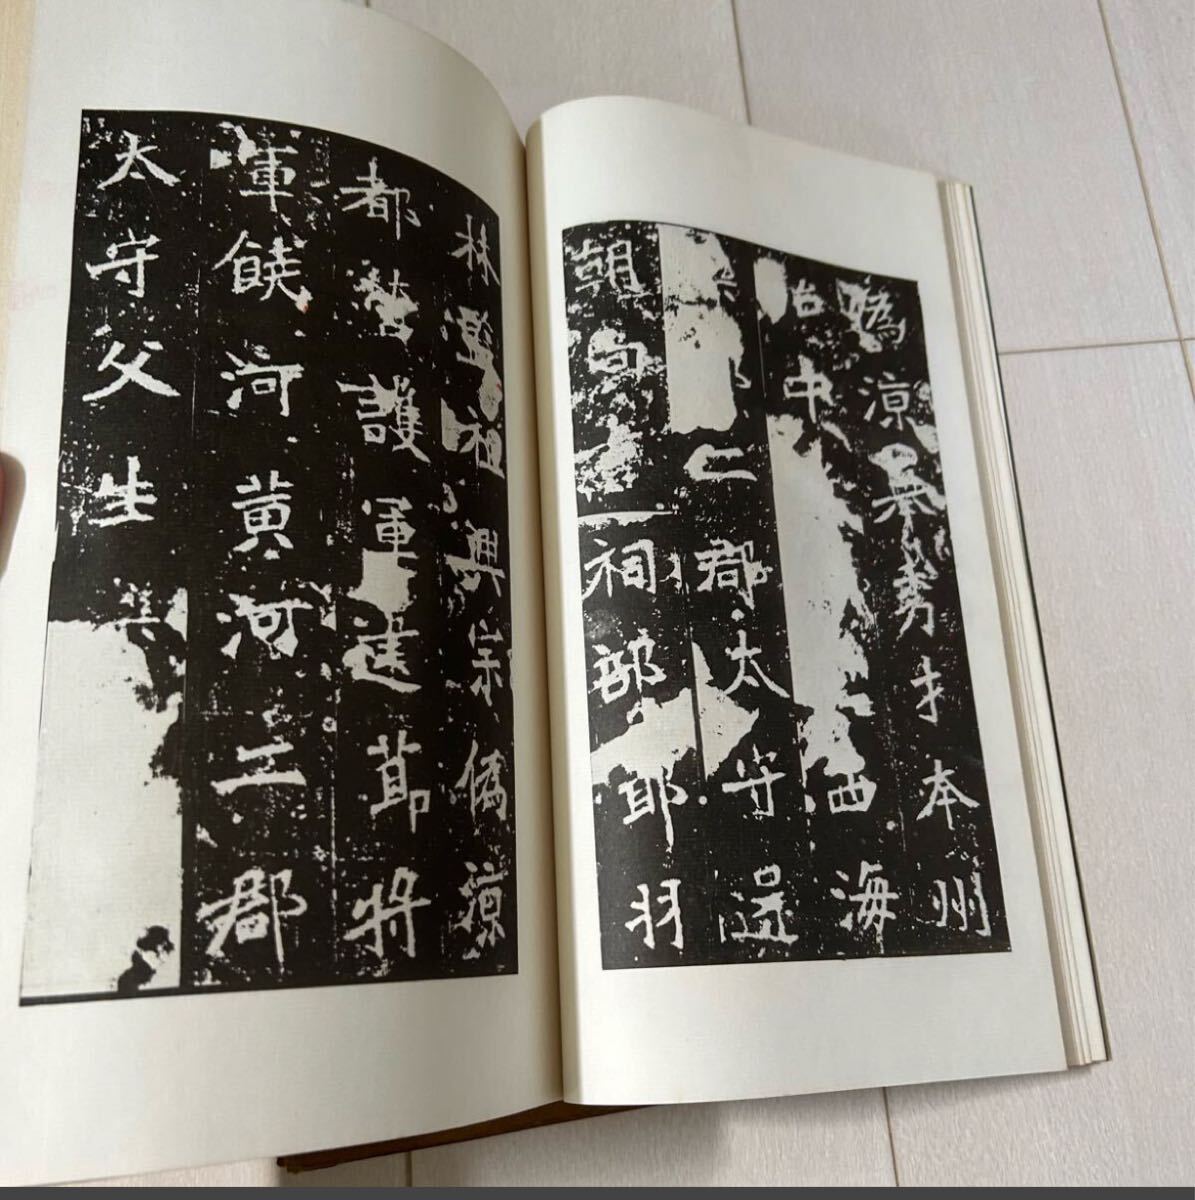 偽涼舉秀才本州
治中西海
二郡太守還
朝尚書祠部郎羽
林監祖興宗偽涼
都營護軍建節將
軍饒河黃河二郡
太守父生